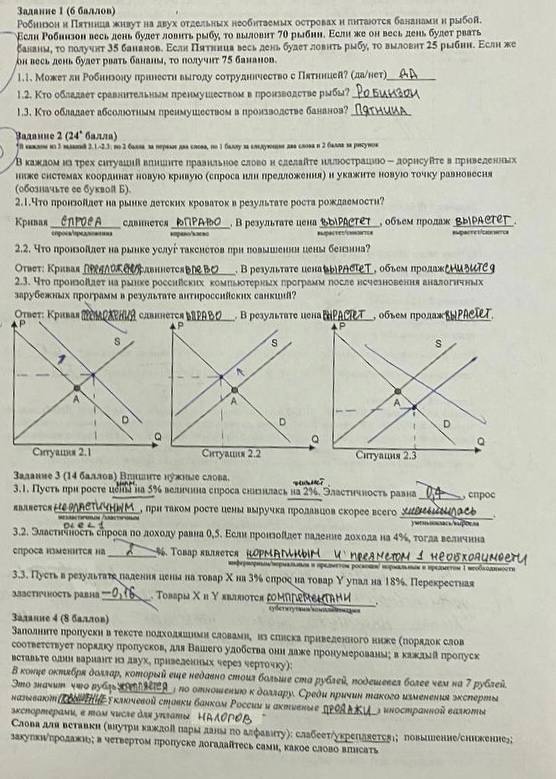 Задание 1 (6 баллов)
Робинзон и Пятница живут на двух отдельных необитаемых островах и питаются бананами и рыбой.
Если Робинзон весь день будет ловить рыбу, то выловит 70 рыбин. Если же он весь день будет рвать
бананы, то получит 35 бананов. Если Пятница весь день будет ловить рыбу, то выловит 25 рыбин. Если же
он весь день будет рвать бананы, то получит 75 бананов.
1.1. Может ли Робинзону принести выгоду сотрудничество с Пятницей? (да/нет) ДА
1.2. Кто обладает сравнительным преимуществом в производстве рыбы? РОБИНЗОН
1.3. Кто обладает абсолютным преимуществом в производстве бананов? ПЯТНИЦА
Задание 2 (24* балла)
*В каждом из 3 заданий 2.1.-2.3: по 2 балла за первые два слова, по 1 баллу за следующие два слова и 2 балла за рисунок
В каждом из трех ситуаций впишите правильное слово и сделайте иллюстрацию – дорисуйте в приведенных
ниже системах координат новую кривую (спроса или предложения) и укажите новую точку равновесия
(обозначьте ее буквой Б).
2.1.Что произойдет на рынке детских кроваток в результате роста рождаемости?
Кривая СПРОСА сдвинется ВПРАВО. В результате цена ВЫРАСТЕТ, объем продаж ВЫРАСТЕТ.
спроса/предложения вправо/влево вырастет/снизится вырастет/снизится
2.2. Что произойдет на рынке услуг таксистов при повышении цены бензина?
Ответ: Кривая ПРЕДЛОЖЕНИЯ сдвинется ВЛЕВО. В результате цена ВЫРАСТЕТ, объем продаж СНИЗИТСЯ
2.3. Что произойдет на рынке российских компьютерных программ после исчезновения аналогичных
зарубежных программ в результате антироссийских санкций?
Ответ: Кривая ПРЕДЛОЖЕНИЯ сдвинется ВПРАВО. В результате цена ВЫРАСТЕТ, объем продаж ВЫРАСТЕТ.
P S A D Q
P S A D Q
P S A D Q
Ситуация 2.1 Ситуация 2.2 Ситуация 2.3
Задание 3 (14 баллов) Впишите нужные слова.
3.1. Пусть при росте цены на 5% величина спроса снизилась на 2%. Эластичность равна 0,4, спрос
является НЕЭЛАСТИЧНЫМ, при таком росте цены выручка продавцов скорее всего уменьшилась.
неэластичным /эластичным уменьшилась/выросла
0≤E≤1
3.2. Эластичность спроса по доходу равна 0,5. Если произойдет падение дохода на 4%, тогда величина
спроса изменится на 2 %. Товар является НОРМАЛЬНЫМ И ПРЕДМЕТОМ 1 НЕОБХОДИМОСТИ
инфериорным/нормальным и предметом роскоши/ нормальным и предметом 1 необходимости
3.3. Пусть в результате падения цены на товар X на 3% спрос на товар Y упал на 18%. Перекрестная
эластичность равна -0,16. Товары X и Y являются КОМПЛЕМЕНТАМИ.
субститутами/комплементами
Задание 4 (8 баллов)
Заполните пропуски в тексте подходящими словами, из списка приведенного ниже (порядок слов
соответствует порядку пропусков, для Вашего удобства они даже пронумерованы; в каждый пропуск
вставьте один вариант из двух, приведенных через черточку):
В конце октября доллар, который еще недавно стоил больше ста рублей, подешевел более чем на 7 рублей.
Это значит что рубль по отношению к доллару. Среди причин такого изменения эксперты
называют ПОВЫШЕНИЕ ключевой ставки банком России и активные ПРОДАЖИ иностранной валюты
экспортерами, в том числе для уплаты НАЛОГОВ
Слова для вставки (внутри каждой пары даны по алфавиту): слабеет/укрепляется₁; повышение/снижение₂;
закупки/продажи₃; в четвертом пропуске догадайтесь сами, какое слово вписать